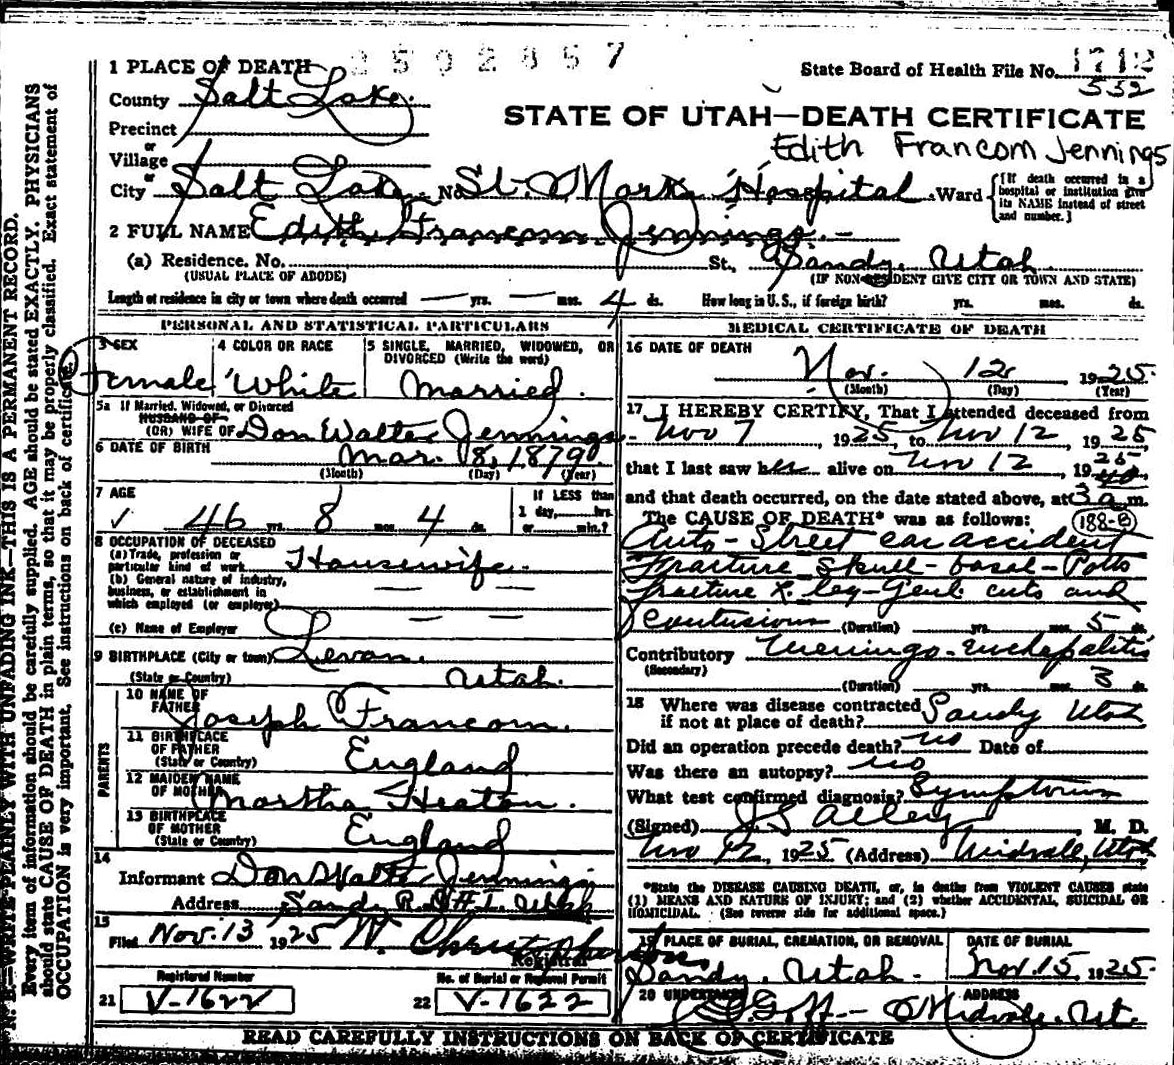 2502857
1 PLACE OF DEATH
State Board of Health File No. 1712
552
County Salt Lake.
STATE OF UTAH—DEATH CERTIFICATE
Precinct
Edith Francom Jennings
or
Village
or
City Salt Lake. No. St. Mark's Hospital Ward
[If death occurred in a hospital or institution give its NAME instead of street and number.]
2 FULL NAME Edith Francom Jennings.
(a) Residence. No. St., Sandy, Utah
(USUAL PLACE OF ABODE) (IF NON-RESIDENT GIVE CITY OR TOWN AND STATE)
Length of residence in city or town where death occurred — yrs. — mos. 4 ds. How long in U. S., if foreign birth? yrs. mos. ds.
PERSONAL AND STATISTICAL PARTICULARS
3 SEX Female
4 COLOR OR RACE White
5 SINGLE, MARRIED, WIDOWED, OR DIVORCED (Write the word) Married.
5a If Married, Widowed, or Divorced
HUSBAND OF
(OR) WIFE OF Don Walter Jennings
6 DATE OF BIRTH Mar. 8, 1879
(Month) (Day) (Year)
7 AGE
46 yrs. 8 mos. 4 ds.
If LESS than 1 day, hrs. or min.?
8 OCCUPATION OF DECEASED
(a) Trade, profession or particular kind of work Housewife.
(b) General nature of industry, business, or establishment in which employed (or employer) — —
(c) Name of Employer — —
9 BIRTHPLACE (City or town) Levan.
(State or Country) Utah.
PARENTS
10 NAME OF FATHER Joseph Francom.
11 BIRTHPLACE OF FATHER (State or Country) England
12 MAIDEN NAME OF MOTHER Martha Heaton.
13 BIRTHPLACE OF MOTHER (State or Country) England
14
Informant Don Walter Jennings
Address Sandy R. #1. Utah
15
Filed Nov. 13 1925
Registrar
Registered Number
21 V-1622
No. of Burial or Removal Permit
22 V-1622
MEDICAL CERTIFICATE OF DEATH
16 DATE OF DEATH
Nov. 12 1925.
(Month) (Day) (Year)
17 I HEREBY CERTIFY, That I attended deceased from
Nov 7, 1925, to Nov 12, 1925
that I last saw her alive on Nov 12, 1925
and that death occurred, on the date stated above, at 3 a m.
The CAUSE OF DEATH* was as follows: 188-B
Auto-Street car accident
Fracture Skull-basal-Potts
fracture R. leg-Genl. cuts and
Contusions (Duration) yrs. mos. 5 ds.
Contributory Meningo-
(Secondary)
(Duration) yrs. mos. 3 ds.
18 Where was disease contracted if not at place of death? Sandy Utah
Did an operation precede death? no Date of
Was there an autopsy? no
What test confirmed diagnosis? Symptoms
(Signed) M. D.
Nov 12, 1925 (Address) Midvale, Utah
*State the DISEASE CAUSING DEATH, or, in deaths from VIOLENT CAUSES state (1) MEANS AND NATURE OF INJURY; and (2) whether ACCIDENTAL, SUICIDAL OR HOMICIDAL. (See reverse side for additional space.)
19 PLACE OF BURIAL, CREMATION, OR REMOVAL
Sandy, Utah.
DATE OF BURIAL
Nov. 15, 1925.
20 UNDERTAKER
Goff—
ADDRESS
Midvale. Ut.
READ CAREFULLY INSTRUCTIONS ON BACK OF CERTIFICATE
N. B.—WRITE PLAINLY WITH UNFADING INK—THIS IS A PERMANENT RECORD.
Every item of information should be carefully supplied. AGE should be stated EXACTLY. PHYSICIANS
should state CAUSE OF DEATH in plain terms, so that it may be properly classified. Exact statement of
OCCUPATION is very important. See instructions on back of certificate.